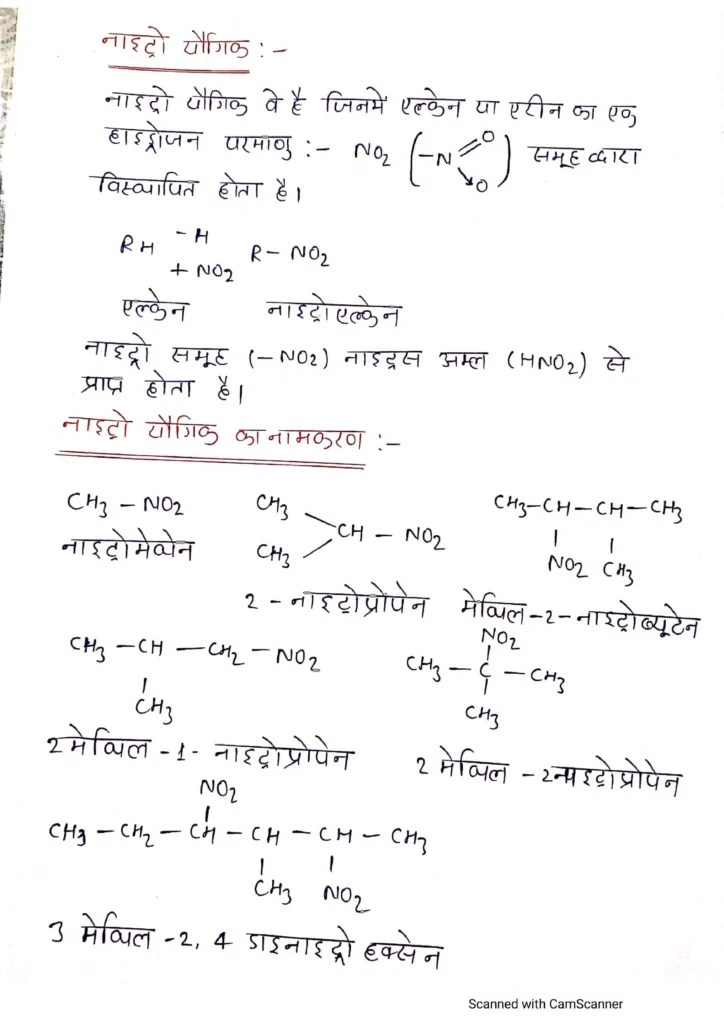 नाइट्रो यौगिक :-
नाइट्रो यौगिक वे है जिनमें एल्केन या एरीन का एक
हाइड्रोजन परमाणु :- NO2 (-N=O→O) समूह द्वारा
विस्थापित होता है।
RH -H +NO2 R- NO2
एल्केन नाइट्रोएल्केन
नाइट्रो समूह (-NO2) नाइट्रस अम्ल (HNO2) से
प्राप्त होता है।
नाइट्रो यौगिक का नामकरण :-
CH3 - NO2 CH3 CH3-CH-CH-CH3
CH - NO2
नाइट्रोमेथेन CH3 NO2 CH3
2 - नाइट्रोप्रोपेन मेथिल-2-नाइट्रोब्यूटेन
NO2
CH3 -CH -CH2-NO2 CH3-C-CH3
CH3 CH3
2मेथिल -1- नाइट्रोप्रोपेन 2 मेथिल -2नाइट्रोप्रोपेन
NO2
CH3-CH2-CH-CH-CH-CH3
CH3 NO2
3 मेथिल -2, 4 डाइनाइट्रो हक्सेन
Scanned with CamScanner